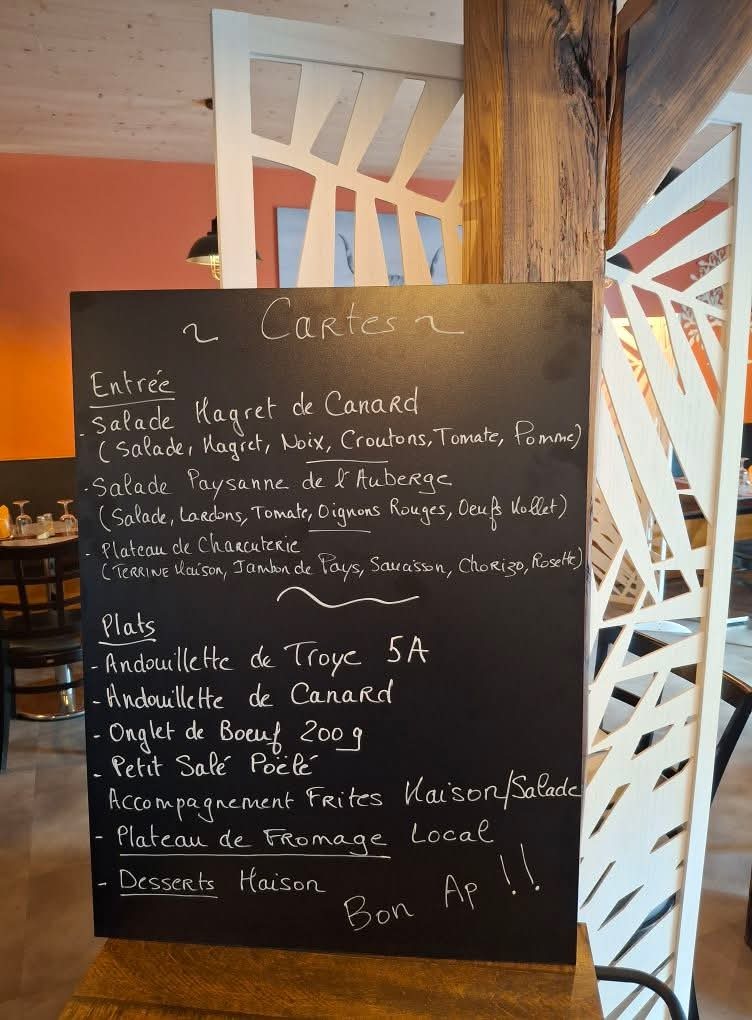 ~ Cartes ~
Entrée
- Salade Magret de Canard
(Salade, Magret, Noix, Croutons, Tomate, Pomme)
- Salade Paysanne de l'Auberge
(Salade, Lardons, Tomate, Oignons Rouges, Oeufs Mollet)
- Plateau de Charcuterie
(Terrine Maison, Jambon de Pays, Saucisson, Chorizo, Rosette)
Plats
- Andouillette de Troye 5A
- Andouillette de Canard
- Onglet de Boeuf 200g
- Petit Salé Poêlé
Accompagnement Frites Maison/Salade
- Plateau de Fromage Local
- Desserts Maison
Bon Ap !!